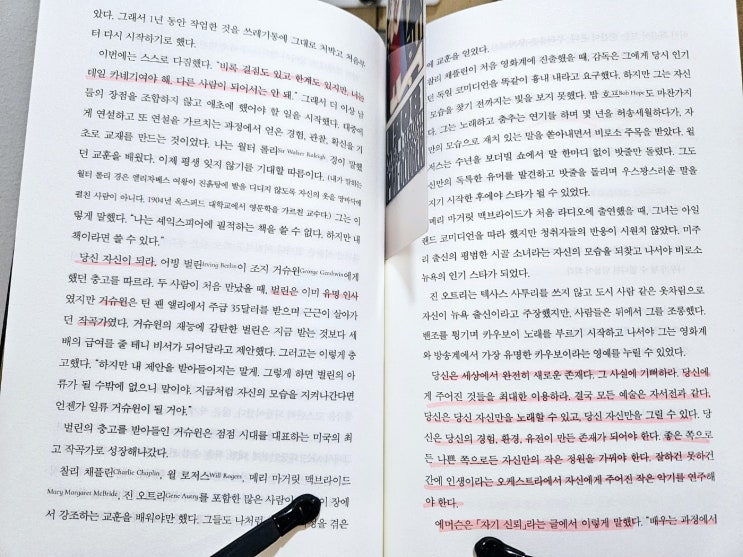 았다. 그래서 1년 동안 작업한 것을 쓰레기통에 그대로 처박고 처음부
터 다시 시작하기로 했다.
이번에는 스스로 다짐했다. “비록 결점도 있고 한계도 있지만, 나는
테일 카네기여야 해. 다른 사람이 되어서는 안 돼.” 그래서 더 이상 남
들의 장점을 조합하지 않고 애초에 했어야 할 일을 시작했다. 대중에
게 연설하고 또 연설을 가르치는 과정에서 얻은 경험, 관찰, 확신을 기
초로 교재를 만드는 것이었다. 나는 월터 롤리Sir Walter Raleigh 경이 말했
던 교훈을 배웠다. 이제 평생 잊지 않기를 기대할 따름이다. (내가 말하는
월터 롤리 경은 엘리자베스 여왕이 진흙탕에 발을 디디지 않도록 자신의 옷을 땅바닥에
펼친 사람이 아니다. 1904년 옥스퍼드 대학교에서 영문학을 가르친 교수다.) 그는 이
렇게 말했다. “나는 셰익스피어에 필적하는 책을 쓸 수 없다. 하지만 내
책이라면 쓸 수 있다.”
당신 자신이 되라. 어빙 벌린Irving Berlin이 조지 거슈윈George Gershwin에게
했던 충고를 따르라. 두 사람이 처음 만났을 때, 벌린은 이미 유명 인사
였지만 거슈윈은 틴 팬 앨리에서 주급 35달러를 받으며 근근이 살아가
던 작곡가였다. 거슈윈의 재능에 감탄한 벌린은 지금 받는 것보다 세
배의 급여를 줄 테니 비서가 되어달라고 제안했다. 그러고는 이렇게 충
고했다. “하지만 내 제안을 받아들이지는 말게. 그렇게 하면 벌린의 아
류가 될 수밖에 없으니 말이야. 지금처럼 자신의 모습을 지켜나간다면
언젠가 일류 거슈윈이 될 거야.”
벌린의 충고를 받아들인 거슈윈은 점점 시대를 대표하는 미국의 최
고 작곡가로 성장해나갔다.
찰리 채플린Charlie Chaplin, 윌 로저스Will Rogers, 메리 마거릿 맥브라이드
Mary Margaret McBride, 진 오트리Gene Autry를 포함한 많은 사람이 장에
서 강조하는 교훈을 배워야만 했다. 그들도 나처럼 정을 겪은
에 교훈을 얻었다.
찰리 채플린이 처음 영화계에 진출했을 때, 감독은 그에게 당시 인기
던 독일 코미디언을 똑같이 흉내 내라고 요구했다. 하지만 그는 자신
모습을 찾기 전까지는 빛을 보지 못했다. 밥 호프Bob Hope도 마찬가지
다. 그는 노래하고 춤추는 연기를 하며 몇 년을 허송세월하다가, 자
만의 모습으로 재치 있는 말을 쏟아내면서 비로소 주목을 받았다. 윌
저스는 수년을 보더빌 쇼에서 말 한마디 없이 밧줄만 돌렸다. 그도
신만의 독특한 유머를 발견하고 밧줄을 돌리며 우스꽝스러운 말을
지기 시작한 후에야 스타가 될 수 있었다.
메리 마거릿 맥브라이드가 처음 라디오에 출연했을 때, 그녀는 아일
랜드 코미디언을 따라 했지만 청취자들의 반응이 시원치 않았다. 미주
리 출신의 평범한 시골 소녀라는 자신의 모습을 되찾고 나서야 비로소
뉴욕의 인기 스타가 되었다.
진 오트리는 텍사스 사투리를 쓰지 않고 도시 사람 같은 옷차림으로
자신이 뉴욕 출신이라고 주장했지만, 사람들은 뒤에서 그를 조롱했다.
벤조를 튕기며 카우보이 노래를 부르기 시작하고 나서야 그는 영화계
와 방송계에서 가장 유명한 카우보이라는 영예를 누릴 수 있었다.
당신은 세상에서 완전히 새로운 존재다. 그 사실에 기뻐하라. 당신에
게 주어진 것들을 최대한 이용하라. 결국 모든 예술은 자서전과 같다.
당신은 당신 자신만을 노래할 수 있고, 당신 자신만을 그릴 수 있다. 당
신은 당신의 경험, 환경, 유전이 만든 존재가 되어야 한다. 좋은 쪽으로
든 나쁜 쪽으로든 자신만의 작은 정원을 가꿔야 한다. 잘하건 못하건
간에 인생이라는 오케스트라에서 자신에게 주어진 작은 악기를 연주해
야 한다.
에머슨은 「자기 신뢰」라는 글에서 이렇게 말했다. “배우는 과정에서